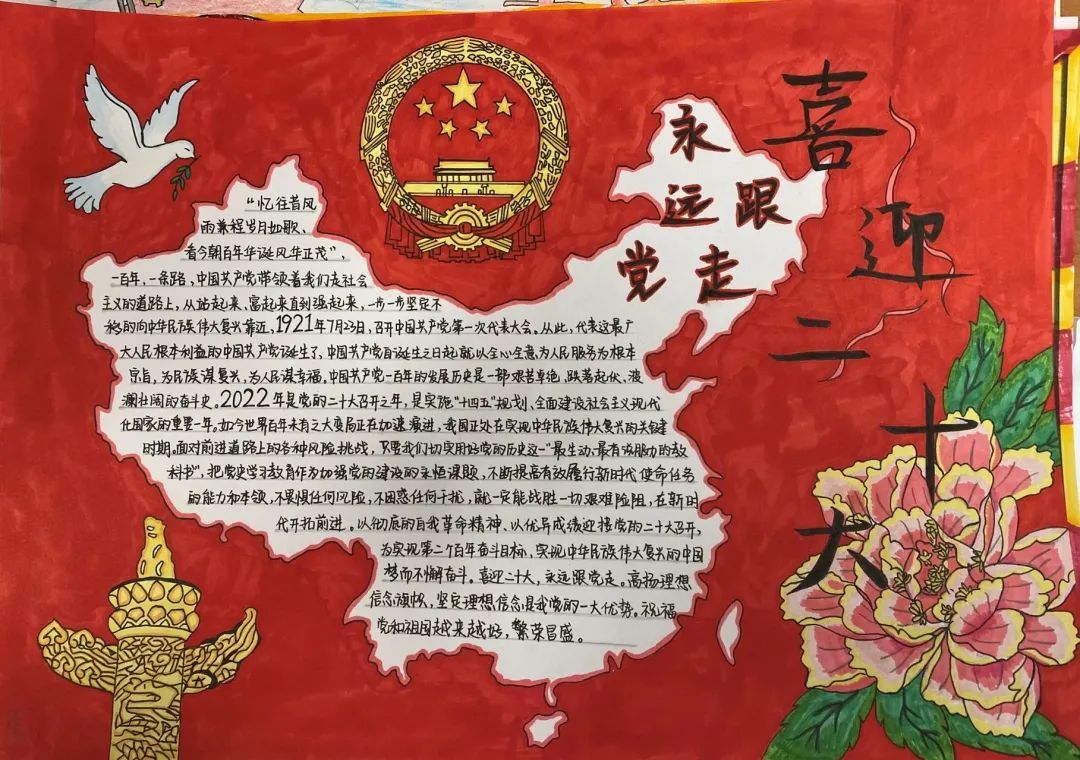 喜迎二十大
永远跟
党走
“忆往昔风
雨兼程岁月如歌、
看今朝百年华诞风华正茂”，
一百年，一条路，中国共产党带领着我们走社会
主义的道路上，从站起来、富起来直到强起来，一步一步坚定不
移的向中华民族伟大复兴靠近。1921年7月23日，召开中国共产党第一次代表大会。从此，代表这最广
大人民根本利益的中国共产党诞生了，中国共产党自诞生之日起就以全心全意为人民服务为根本
宗旨，为民族谋复兴，为人民谋幸福。中国共产党一百年的发展历史是一部艰苦卓绝，跌宕起伏、波
澜壮阔的奋斗史。2022年是党的二十大召开之年，是实施“十四五”规划、全面建设社会主义现代
化国家的重要一年。如今世界百年未有之大变局正在加速演进，我国正处在实现中华民族伟大复兴的关键
时期。面对前进道路上的各种风险挑战，只要我们切实用好党的历史这一“最生动、最有说服力的教
科书”，把党史学习教育作为加强党的建设的永恒课题，不断提高有效履行新时代使命任务
的能力和本领，不畏惧任何风险，不困惑任何干扰，就一定能战胜一切艰难险阻，在新时
代开拓前进。以彻底的自我革命精神、以优异成绩迎接党的二十大召开，
为实现第二个百年奋斗目标，实现中华民族伟大复兴的中国
梦而不懈奋斗。喜迎二十大，永远跟党走。高扬理想
信念旗帜，坚定理想信念是我党的一大优势。祝福
党和祖国越来越好，繁荣昌盛。